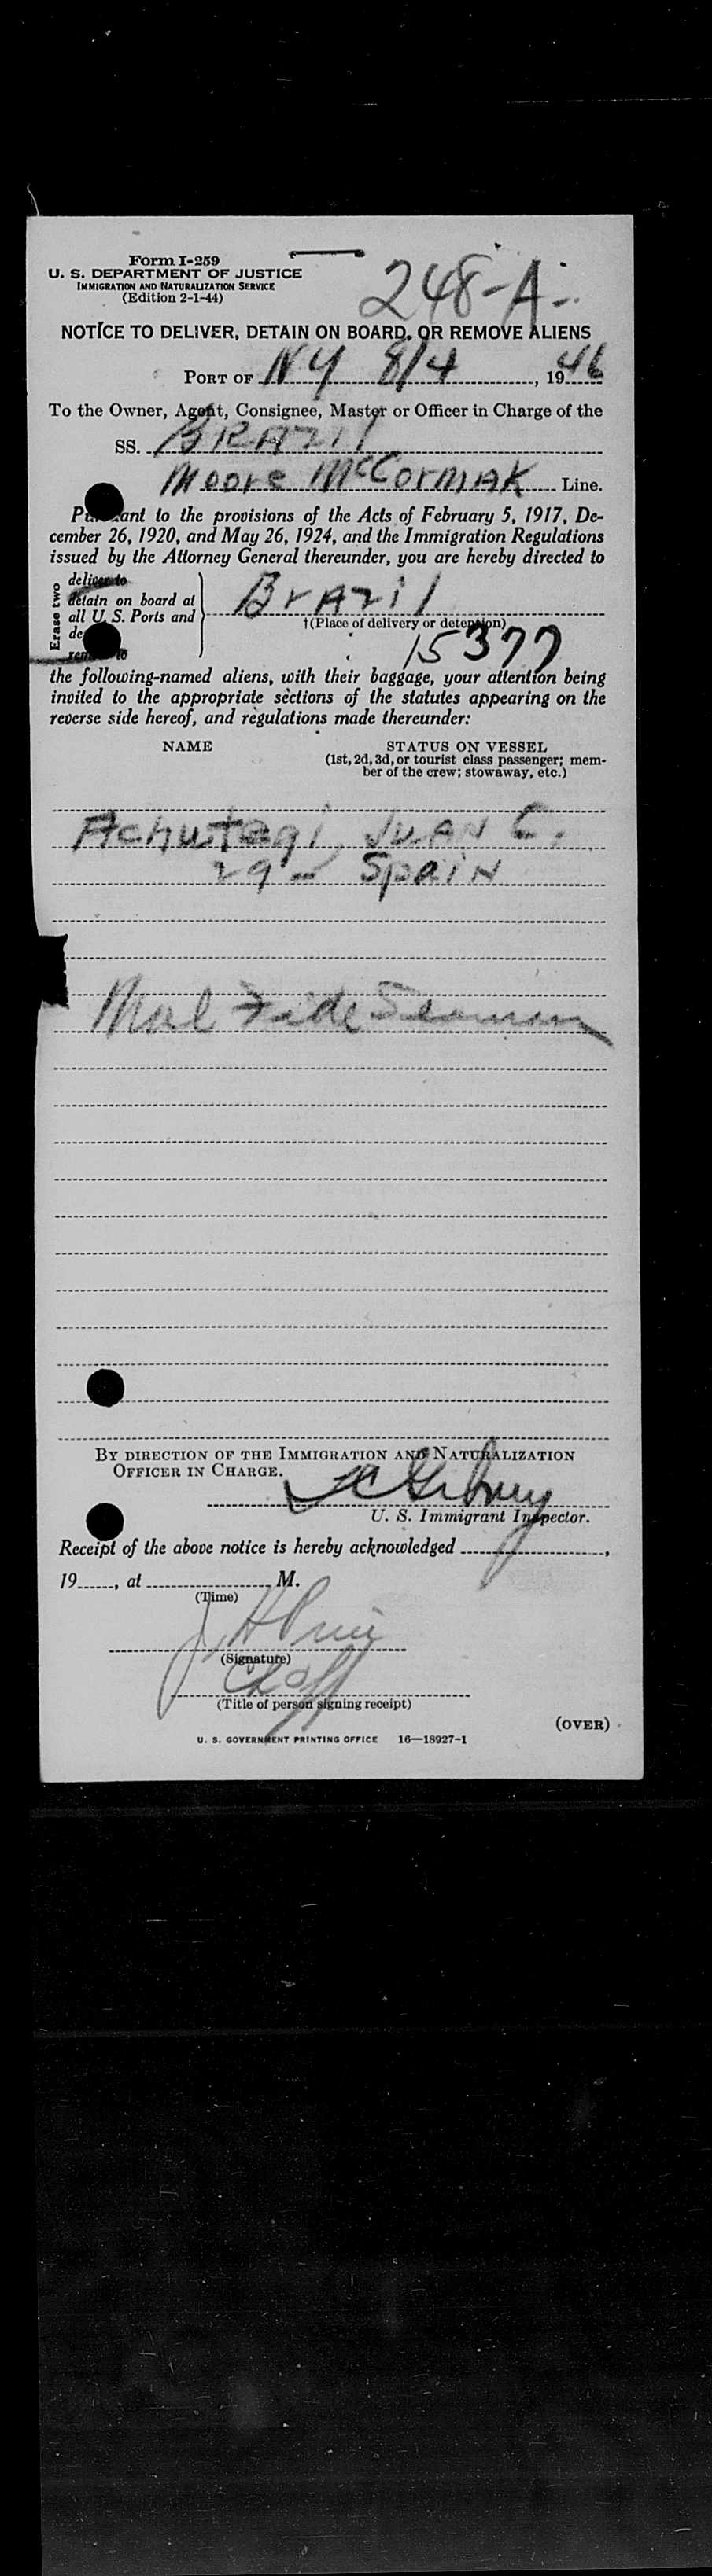 Form I-259
U. S. DEPARTMENT OF JUSTICE
IMMIGRATION AND NATURALIZATION SERVICE
(Edition 2-1-44)
248-A-
NOTICE TO DELIVER, DETAIN ON BOARD, OR REMOVE ALIENS
PORT OF NY 8/4, 1946
To the Owner, Agent, Consignee, Master or Officer in Charge of the
SS. BRAZIl
Moore McCorMAK Line.
Pursuant to the provisions of the Acts of February 5, 1917, De-
cember 26, 1920, and May 26, 1924, and the Immigration Regulations
issued by the Attorney General thereunder, you are hereby directed to
Erase two
deliver to
detain on board at
all U. S. Ports and
de
remove to
BrAzil
†(Place of delivery or detention)
15377
the following-named aliens, with their baggage, your attention being
invited to the appropriate sections of the statutes appearing on the
reverse side hereof, and regulations made thereunder:
NAME
STATUS ON VESSEL
(1st, 2d, 3d, or tourist class passenger; mem-
ber of the crew; stowaway, etc.)
Achutegi, JUAN C.
29 SpaiN
Mal Fide Seaman
BY DIRECTION OF THE IMMIGRATION AND NATURALIZATION
OFFICER IN CHARGE.
U. S. Immigrant Inspector.
Receipt of the above notice is hereby acknowledged ,
19 , at M.
(Time)
(Signature)
(Title of person signing receipt)
(OVER)
U. S. GOVERNMENT PRINTING OFFICE 16—18927-1